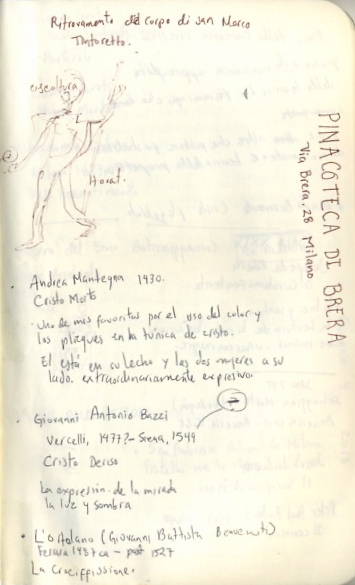 Ritrovamento del corpo di San Marco
Tintoretto.
escoltura
Horat.
PINACOTECA DI BRERA
Via Brera. 28 Milano
Andrea Mantegna 1430.
Cristo Morto
Uno de mis favoritos por el uso del color y
los pliegues en la túnica de cristo.
El está en su lecho y las dos mujeres a su
lado. extraordinariamente expresivo.
Giovanni Antonio Bazzi
Vercelli, 1477?- Siena, 1549
Cristo Deriso
La expresión de la mirada
la luz y sombra
L'Ortolano (Giovanni Battista Benvenuti)
Ferrara 1487 ca - post 1527
La Crocifissione.